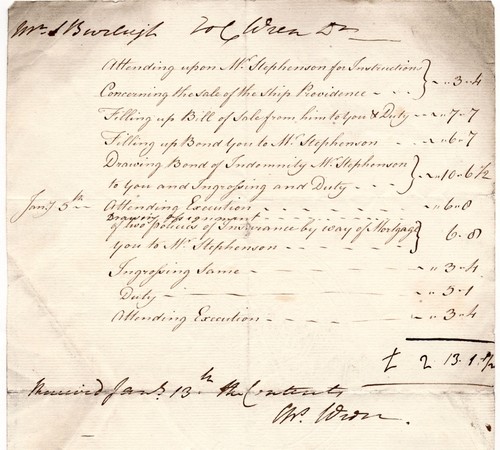 Mrs. S Burleigh To C Wren Dr
Attending upon Mr. Stephenson for Instructions
Concerning the Sale of the Ship Providence - - - } - " 3 " 4
Filling up Bill of Sale from him to You & Duty - " 7 " 7
Filling up Bond You to Mr. Stephenson - - - - " 6 " 7
Drawing Bond of Indemnity Mr. Stephenson
to You and Ingrossing and Duty - - - } - " 10 " 6 1/2
Jany. 5th - Attending Execution - - - - - - - " 6 " 8
Drawing Assignment
of two policies of Insurance by way of Mortgage
You to Mr. Stephenson - - - - - } 6 " 8
Ingrossing Same - - - - - - - - " 3 " 4
Duty - - - - - - - - - " 3 " 1
Attending Execution - - - - - - - " 3 " 4
£ 2 13 " 1 " 1/2
Received Jany. 13th the Contents
Wren